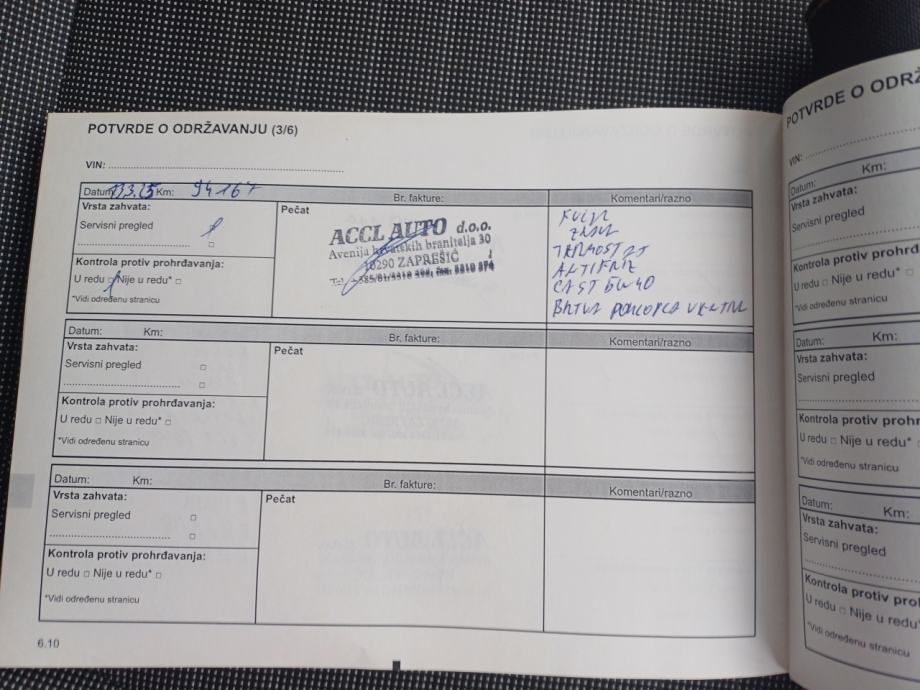 POTVRDE O ODRŽAVANJU (3/6)
VIN:
Datum: Km: 94167 Br. fakture: Komentari/razno
Vrsta zahvata:
Servisni pregled
Kontrola protiv prohrđavanja:
U redu □ Nije u redu* □
*Vidi određenu stranicu
Pečat
ACCL AUTO d.o.o.
Avenija hrvatskih branitelja 30
10290 ZAPREŠIĆ
TERMOSTAT
CAST 5W40
Datum: Km: Br. fakture: Komentari/razno
Vrsta zahvata:
Servisni pregled □
□
Kontrola protiv prohrđavanja:
U redu □ Nije u redu* □
*Vidi određenu stranicu
Pečat
Datum: Km: Br. fakture: Komentari/razno
Vrsta zahvata:
Servisni pregled □
□
Kontrola protiv prohrđavanja:
U redu □ Nije u redu* □
*Vidi određenu stranicu
Pečat
6.10
POTVRDE O ODRŽ
VIN:
Datum: Km:
Vrsta zahvata:
Servisni pregled
Kontrola protiv prohrđav
U redu □ Nije u redu* □
*Vidi određenu stranicu
Datum: Km:
Vrsta zahvata:
Servisni pregled
Kontrola protiv prohr
U redu □ Nije u redu*
*Vidi određenu stranicu
Datum: Km:
Vrsta zahvata:
Servisni pregled
Kontrola protiv proh
U redu □ Nije u redu*
*Vidi određenu stranicu